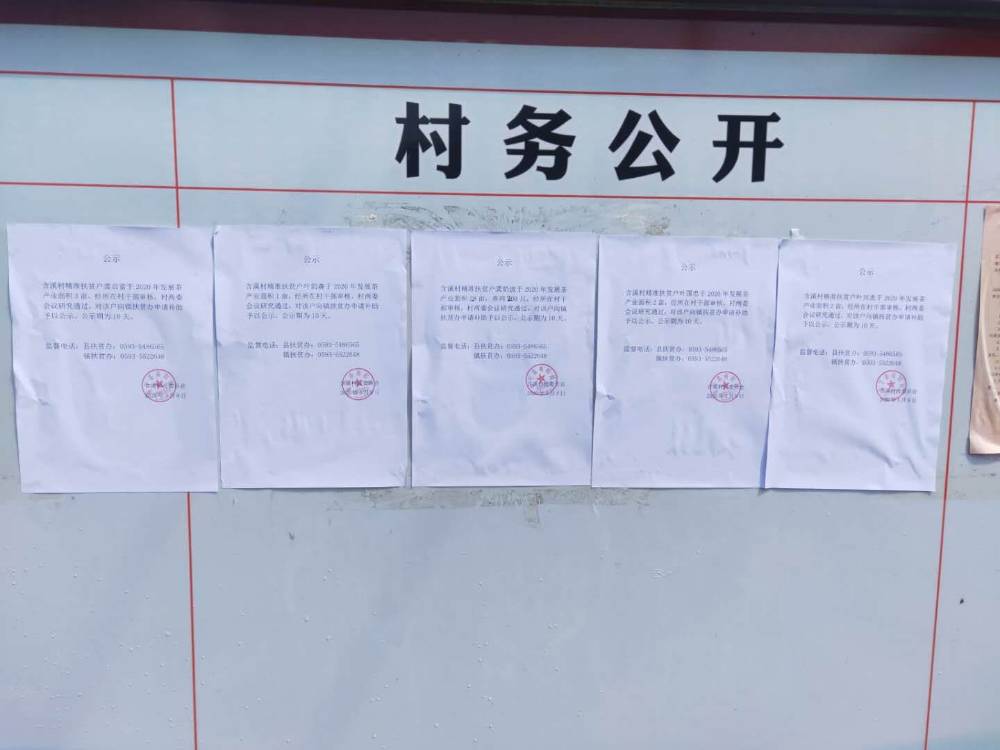 村务公开
公示
含溪村精准扶贫户 于 2020 年发展茶
产业面积3亩，经所在村干部审核，村两委
会议研究通过，对该户向镇扶贫办申请补助
予以公示。公示期为 10 天。
监督电话：县扶贫办：0593-5486565
镇扶贫办：0593-5522648
公示
含溪村精准扶贫户叶 于 2020 年发展茶
产业面积1亩，经所在村干部审核，村两委
会议研究通过，对该户向镇扶贫办申请补助
予以公示。公示期为 10 天。
监督电话：县扶贫办：0593-5486565
镇扶贫办：0593-5522648
公示
含溪村精准扶贫户 于 2020 年发展茶
产业面积 亩， 200 ，经所在村干
部审核，村两委会议研究通过，对该户向镇
扶贫办申请补助予以公示。公示期为 10 天。
监督电话：县扶贫办：0593-5486565
镇扶贫办：0593-5522648
公示
含溪村精准扶贫户叶 于 2020 年发展茶
产业面积2亩，经所在村干部审核，村两委
会议研究通过，对该户向镇扶贫办申请补助
予以公示。公示期为 10 天。
监督电话：县扶贫办：0593-5486565
镇扶贫办：0593-5522648
公示
含溪村精准扶贫户叶 于 2020 年发展茶
产业面积2亩，经所在村干部审核，村两委
会议研究通过，对该户向镇扶贫办申请补助
予以公示。公示期为 10 天。
监督电话：县扶贫办：0593-5486565
镇扶贫办：0593-5522648